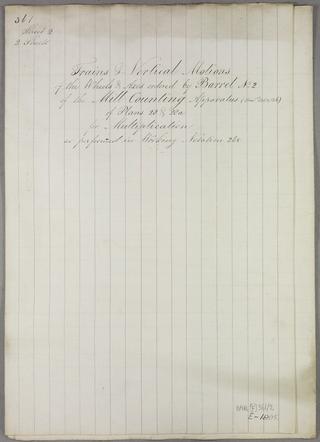 361
Sheet 2
2 Sheets
Trains & Vertical Motions
of the Wheels & Axes ordered by Barrel No 2
of the Mill Counting Apparatus
of Plans 28 & 28a
for Multiplication
as performed in Working Notation
BAB[F]361/2